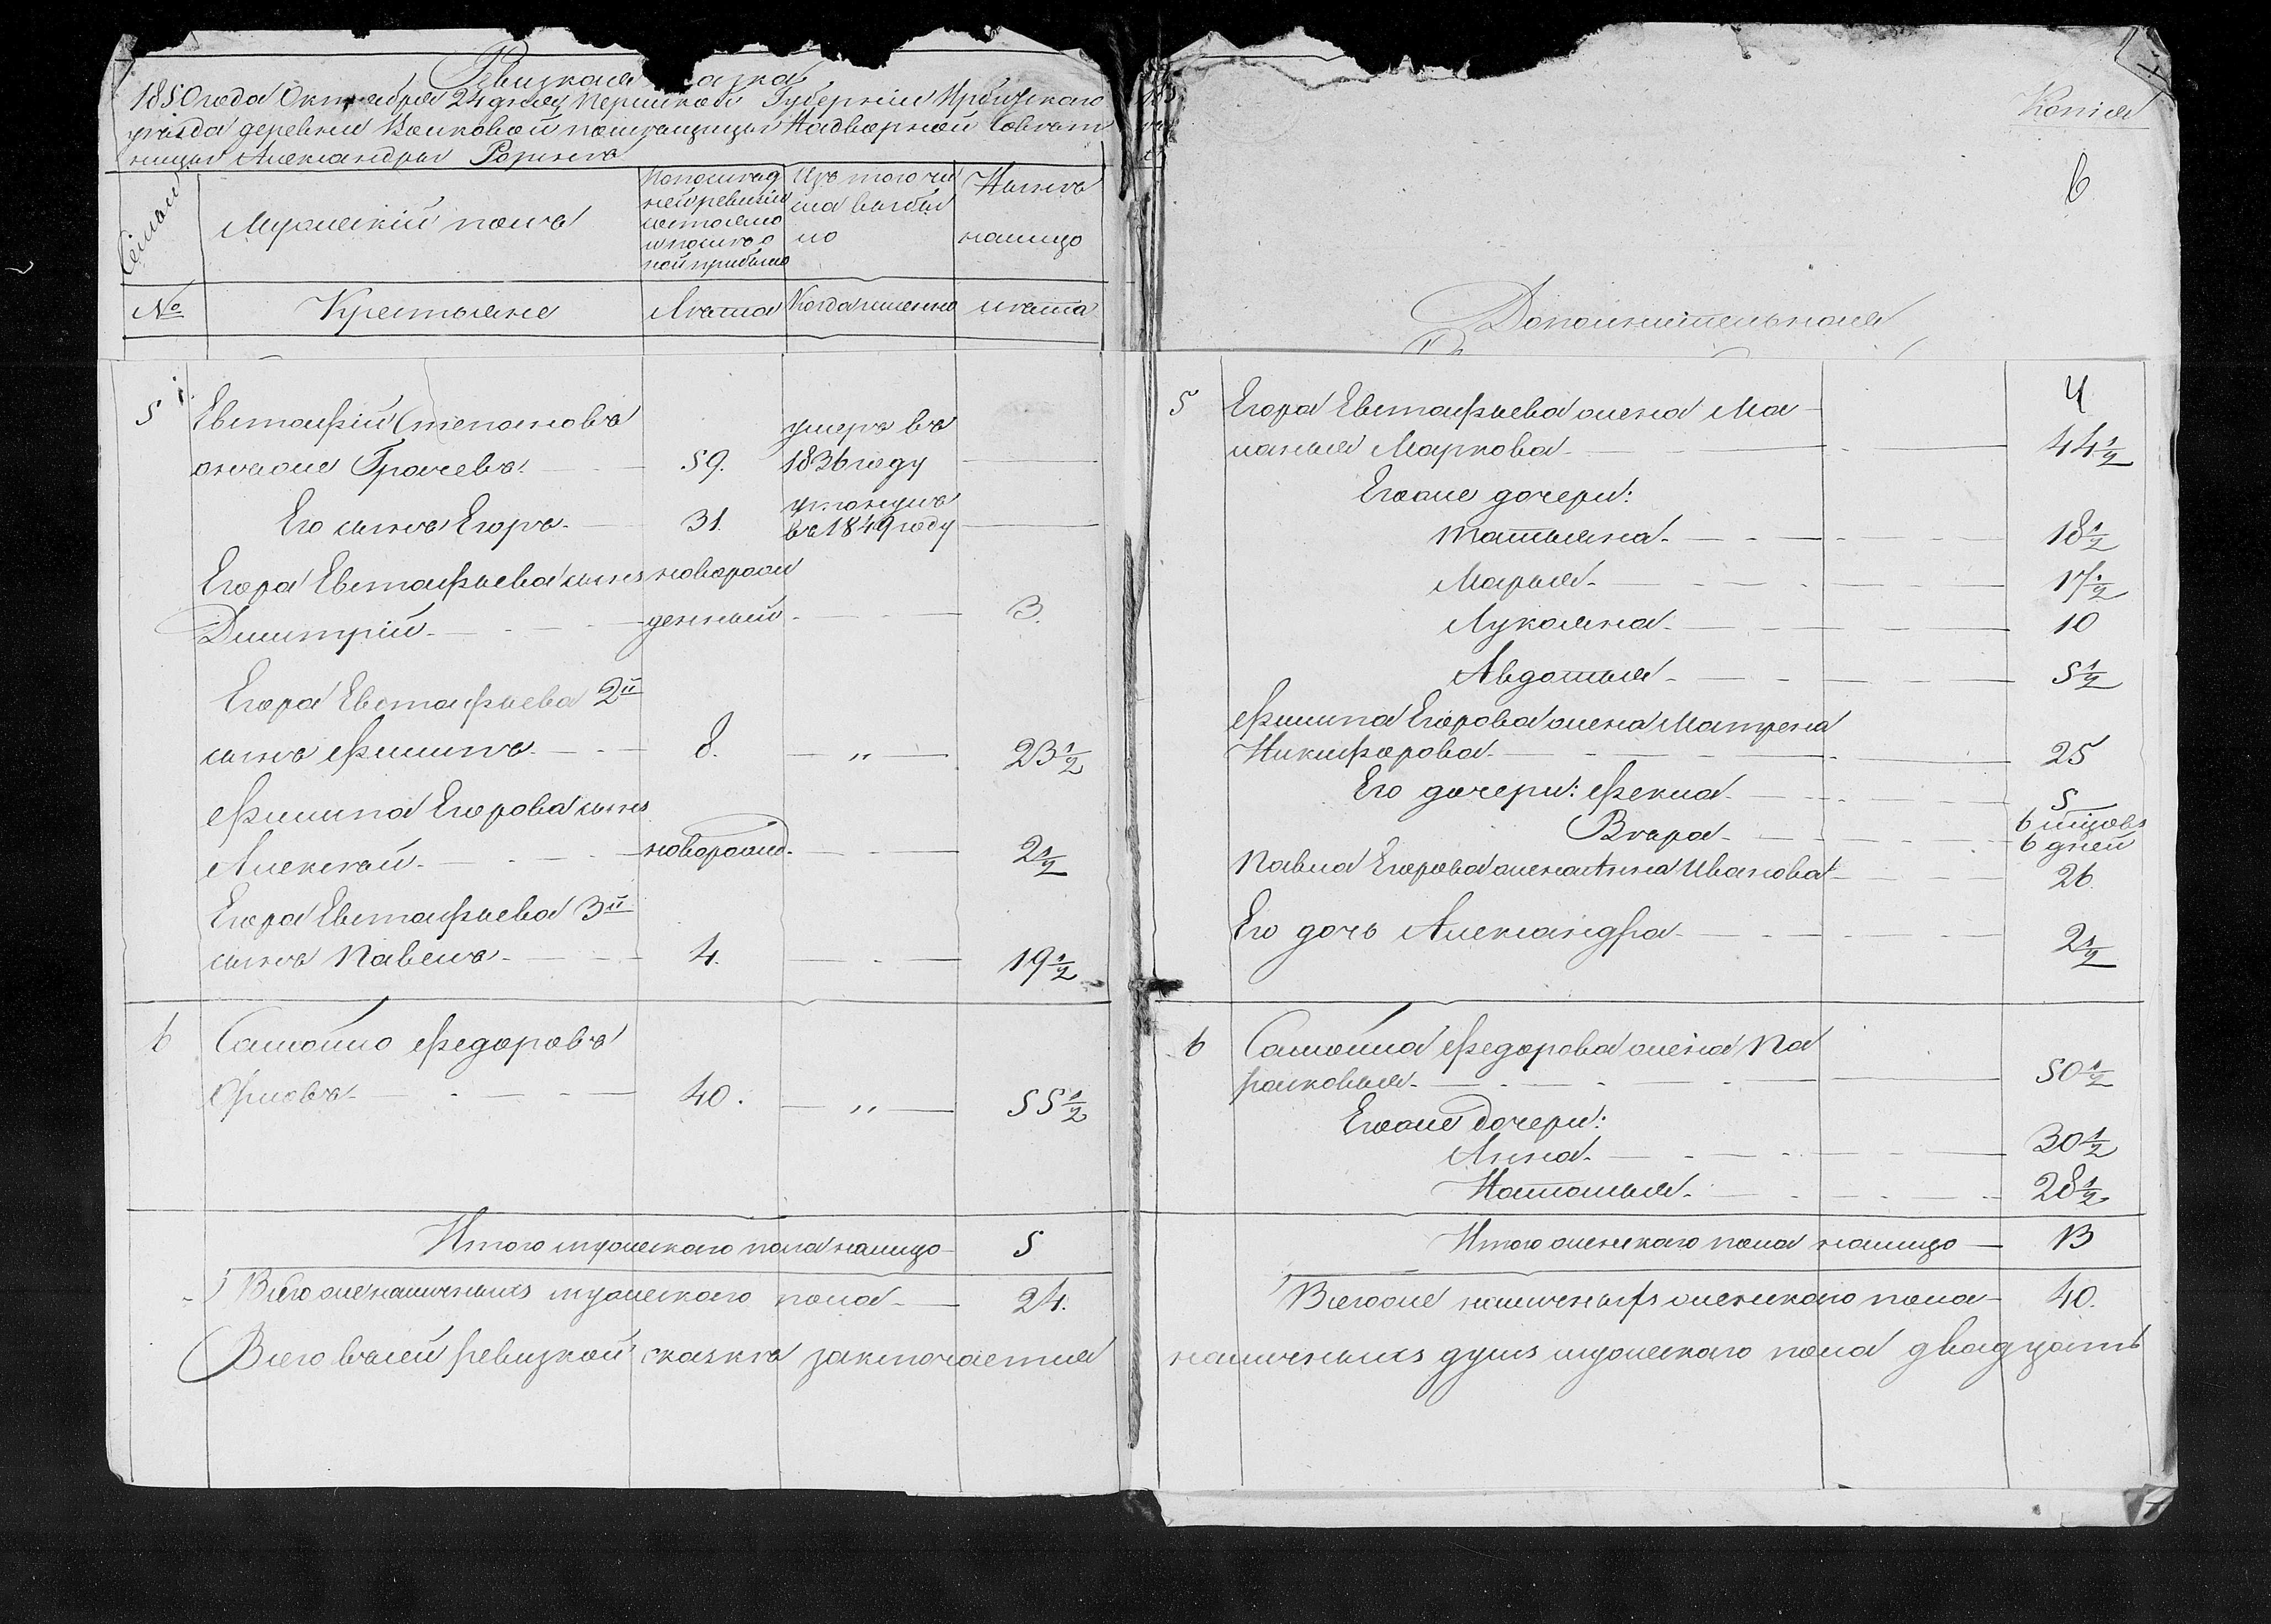 Ревизкая сказка
1850 года Октября 24 дня Пермской Губернии Ирбитскаго
уезда деревни Волковой помещицы Надворной Советницы Александры
Семьи
Мужеский полъ
По последней ревизіи состояло и после оной прибыло
Изъ того числа выбыло
Ныне на лицо
№
Крестьяне
Лета
Когда именно
лета
5 Евстафій Степановъ
онъ же Грачевъ. 59. умеръ въ 1836 году
Его сынъ Егоръ. 31. утонулъ въ 1849 году
Егора Евстафьева сынъ новорож
Димитрій. денный. 3.
Егора Евстафьева 2й
сынъ Филипъ. 8. " 23 1/2
Филипа Егорова сынъ
Алексей. новорожд. 2 1/2
Егора Евстафьева 3й
сынъ Павелъ. 4. 19 1/2
6 Самойло Федоровъ
Орловъ. 40. " 55 1/2
Итого мужескаго пола на лицо 5
Всего же наличныхъ мужескаго пола 24.
Всего въ сей ревизкой сказке заключается
Копия
6
Дополнительная
5 Егора Евстафьева жена Ма
ланья Маркова. 44 1/2
Его же дочери:
Татьяна. 18 1/2
Марья. 17 1/2
Лукояна. 10
Авдотья. 5 1/2
Филипа Егорова жена Матрена
Никифорова. 25
Его дочери: Фекла. 5
Вера. 6 мцовъ
6 дней
Павла Егорова жена Анна Иванова 26.
Его дочь Александра. 2 1/2
6 Самойла Федорова жена Па
расковья. 50 1/2
Его же дочери:
Анна. 30 1/2
Наталья. 28 1/2
Итого женскаго пола на лицо 13
Всего же наличныхъ женскаго пола 40.
наличныхъ душъ мужескаго пола двадцать